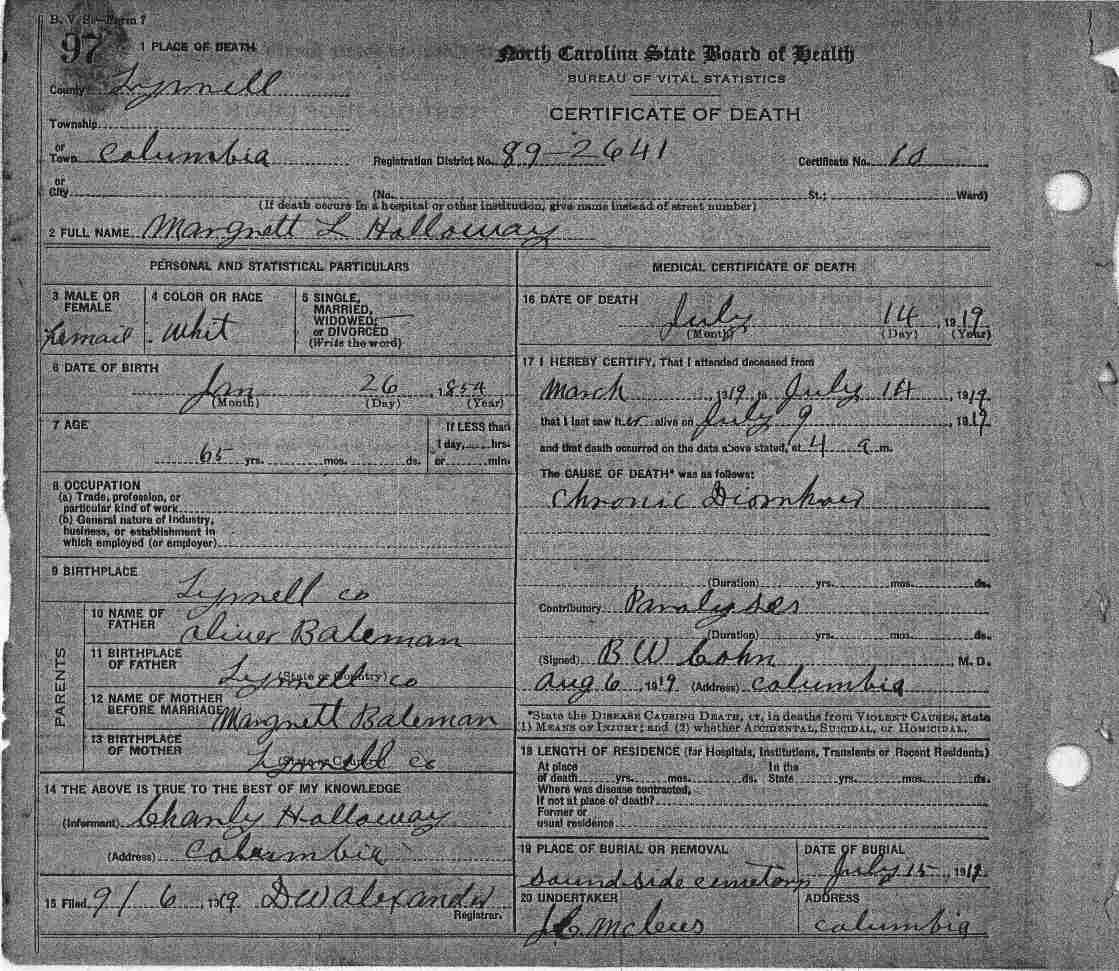 B. V. S.—Form 7
97
1 PLACE OF DEATH
North Carolina State Board of Health
BUREAU OF VITAL STATISTICS
CERTIFICATE OF DEATH
County Tyrrell
Township
or Town Columbia Registration District No. 89-2641 Certificate No. 10
or City (No. St.; Ward)
(If death occurs in a hospital or other institution, give name instead of street number)
2 FULL NAME Margrett L Holloway
PERSONAL AND STATISTICAL PARTICULARS
3 MALE OR FEMALE
Femail
4 COLOR OR RACE
Whit
5 SINGLE, MARRIED, WIDOWED, or DIVORCED
(Write the word)
6 DATE OF BIRTH
Jan 26, 1854
(Month) (Day) (Year)
7 AGE
65 yrs. mos. ds.
If LESS than
1 day, hrs.
or min.
8 OCCUPATION
(a) Trade, profession, or
particular kind of work
(b) General nature of industry,
business, or establishment in
which employed (or employer)
9 BIRTHPLACE
Tyrrell co
PARENTS
10 NAME OF FATHER
Oliver Bateman
11 BIRTHPLACE OF FATHER
(State or Country)
Tyrrell co
12 NAME OF MOTHER BEFORE MARRIAGE
Margrett Bateman
13 BIRTHPLACE OF MOTHER
Tyrrell co
14 THE ABOVE IS TRUE TO THE BEST OF MY KNOWLEDGE
(Informant) Charly Holloway
(Address) Columbia
15 Filed 9/6, 1919 D W Alexander
Registrar.
MEDICAL CERTIFICATE OF DEATH
16 DATE OF DEATH
July 14, 1919
(Month) (Day) (Year)
17 I HEREBY CERTIFY, That I attended deceased from
March 1919 to July 14, 1919
that I last saw her alive on July 9, 1919
and that death occurred on the date above stated, at 4 a m.
The CAUSE OF DEATH* was as follows:
Chronic
(Duration) yrs. mos. ds.
Contributory
(Duration) yrs. mos. ds.
(Signed) B W Cohn M. D.
Aug 6, 1919 (Address) Columbia
*State the DISEASE CAUSING DEATH, or, in deaths from VIOLENT CAUSES, state
(1) MEANS OF INJURY; and (2) whether ACCIDENTAL, SUICIDAL, or HOMICIDAL.
18 LENGTH OF RESIDENCE (for Hospitals, Institutions, Transients or Recent Residents)
At place of death yrs. mos. ds. In the State yrs. mos. ds.
Where was disease contracted,
if not at place of death?
Former or
usual residence
19 PLACE OF BURIAL OR REMOVAL
Sound side cemetory
DATE OF BURIAL
July 15, 1919
20 UNDERTAKER
J C
ADDRESS
Columbia